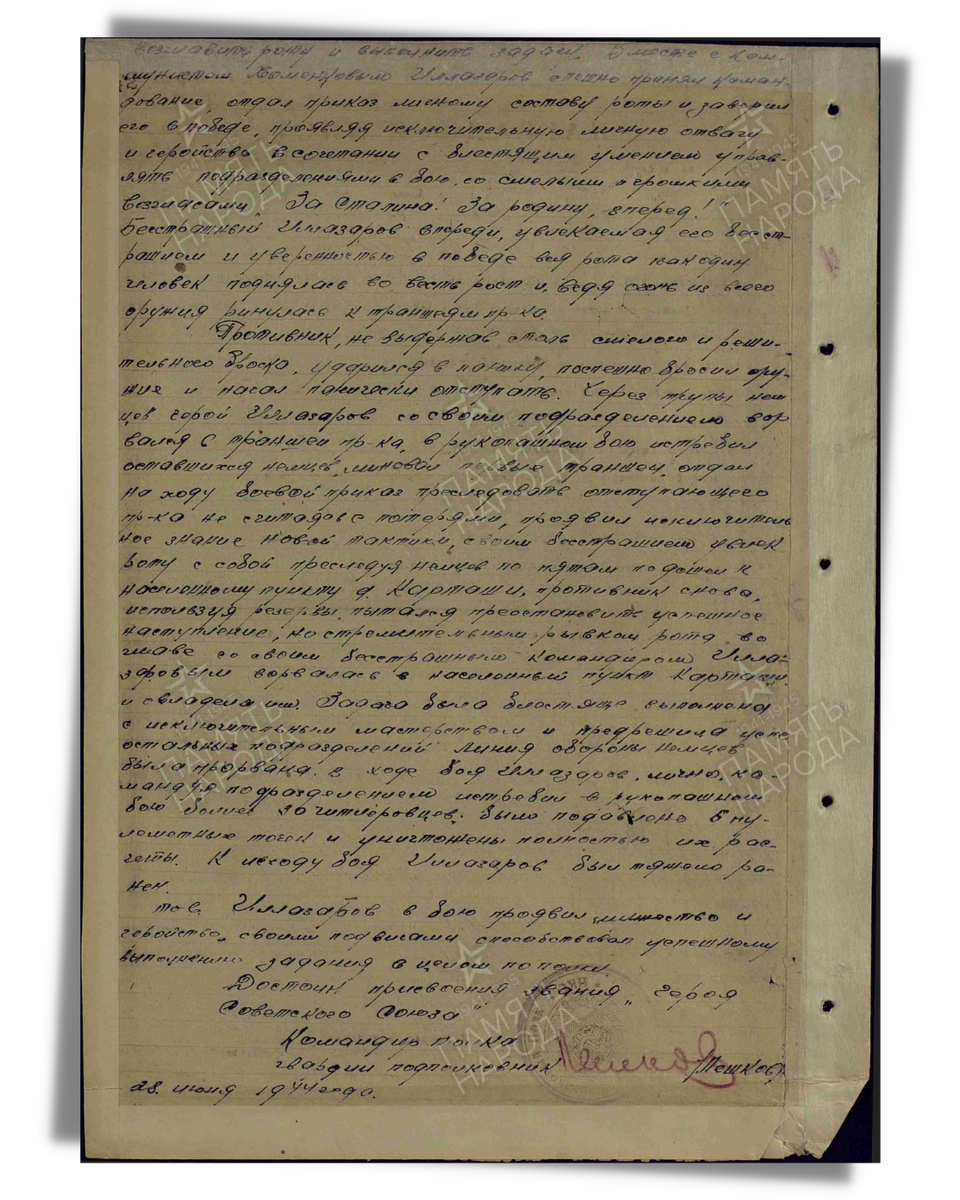 возглавить роту и выполнить задачи. Вместе с ком-
мунистом Хоменковым Иллазаров спешно принял коман-
дование, отдал приказ личному составу роты и заверил
его в победе, проявляя исключительную личную отвагу
и геройство в сочетании с блестящим умением управ-
лять подразделениями в бою, со смелыми и громкими
возгласами „За Сталина! За родину, вперед!"
Бесстрашный Иллазаров впереди, увлекаемая его бесст-
рашием и уверенностью в победе вся рота как один
человек поднялась во весь рост и, ведя огонь из всего
оружия ринулась к траншеям пр-ка.
Противник, не выдержав столь смелого и реши-
тельного броска, ударился в панику, поспешно бросил ору-
жие и начал панически отступать. Через трупы нем
цев герой Иллазаров со своим подразделением вор
вался в траншеи пр-ка, в рукопашном бою истребил
оставшихся немцев, миновал первые траншеи, отдал
на ходу боевой приказ преследовать отступающего
пр-ка не считаясь с потерями, проявил исключитель
ное знание новой тактики, своим бесстрашием увлек
роту с собой преследуя немцев по пятам подошел к
населенному пункту д. Карташи, противник снова,
используя резервы, пытался преостановить успешное
наступление, но стремительным рывком рота во
главе со своим бесстрашным командиром Илла-
заровым ворвалась в населенный пункт Карташи
и овладела им. Задача была блестяще выполнена
с исключительным мастерством и предрешила успех
остальных подразделений линия обороны немцев
была прорвана. В ходе боя Иллазаров, лично, ко-
мандуя подразделением истребил в рукопашном
бою более 30 гитлеровцев. Было подавлено 5 пу-
леметных точек и уничтожены полностью их рас-
четы. К исходу боя Иллазаров был тяжело ра-
нен.
тов. Иллазаров в бою проявил мужество и
геройство, своими подвигами способствовал успешному
выполнению задания в целом по полку
Достоин присвоения звания „Героя
Советского Союза"
Командир полка
гвардии подполковник /Пешков/
28 июня 1944 года.
ПАМЯТЬ
НАРОДА